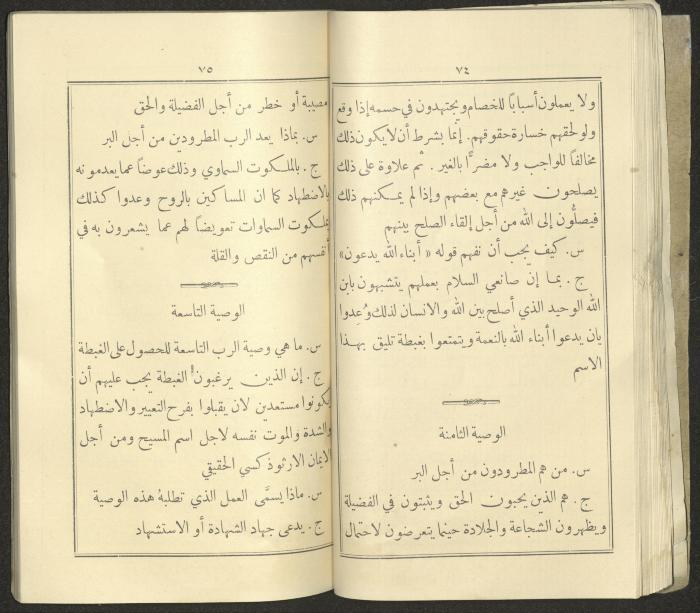 ٧٤
ولا يعملون أسباباً للخصام ويجتهدون في حسمه إذا وقع
ولو لحقهم خسارة حقوقهم. إنما بشرط أن لا يكون ذلك
مخالفاً للواجب ولا مضرًّا بالغير. ثم علاوة على ذلك
يصلحون غيرهم مع بعضهم وإذا لم يمكنهم ذلك
فيصلُّون إلى الله من أجل إلقاء الصلح بينهم
س. كيف يجب أن نفهم قوله « أبناء الله يدعون»
ج. بما إن صانعي السلام بعملهم يتشبهون بابن
الله الوحيد الذي أصلح بين الله والانسان لذلك وُعِدوا
بان يدعوا أبناء الله بالنعمة ويتمتعوا بغبطة تليق بهذا
الاسم
الوصية الثامنة
س. من هم المطرودون من أجل البر
ج. هم الذين يحبون الحق ويثبتون في الفضيلة
ويظهرون الشجاعة والجلادة حينما يتعرضون لاحتمال
٧٥
مصيبة أو خطر من أجل الفضيلة والحق
س. بماذا يعد الرب المطرودين من أجل البر
ج. بالملكوت السماوي وذلك عوضاً عما يعدمونه
بالاضطهاد كما ان المساكين بالروح وعدوا كذلك
بملكوت السماوات تعويضاً لهم عما يشعرون به في
أنفسهم من النقص والقلة
الوصية التاسعة
س. ما هي وصية الرب التاسعة للحصول على الغبطة
ج. إن الذين يرغبون الغبطة يجب عليهم أن
يكونوا مستعدين لان يقبلوا بفرح التعيير والاضطهاد
والشدة والموت نفسه لاجل اسم المسيح ومن أجل
الايمان الارثوذكسي الحقيقي
س. ماذا يسمَّى العمل الذي تطلبهُ هذه الوصية
ج. يدعى جهاد الشهادة أو الاستشهاد